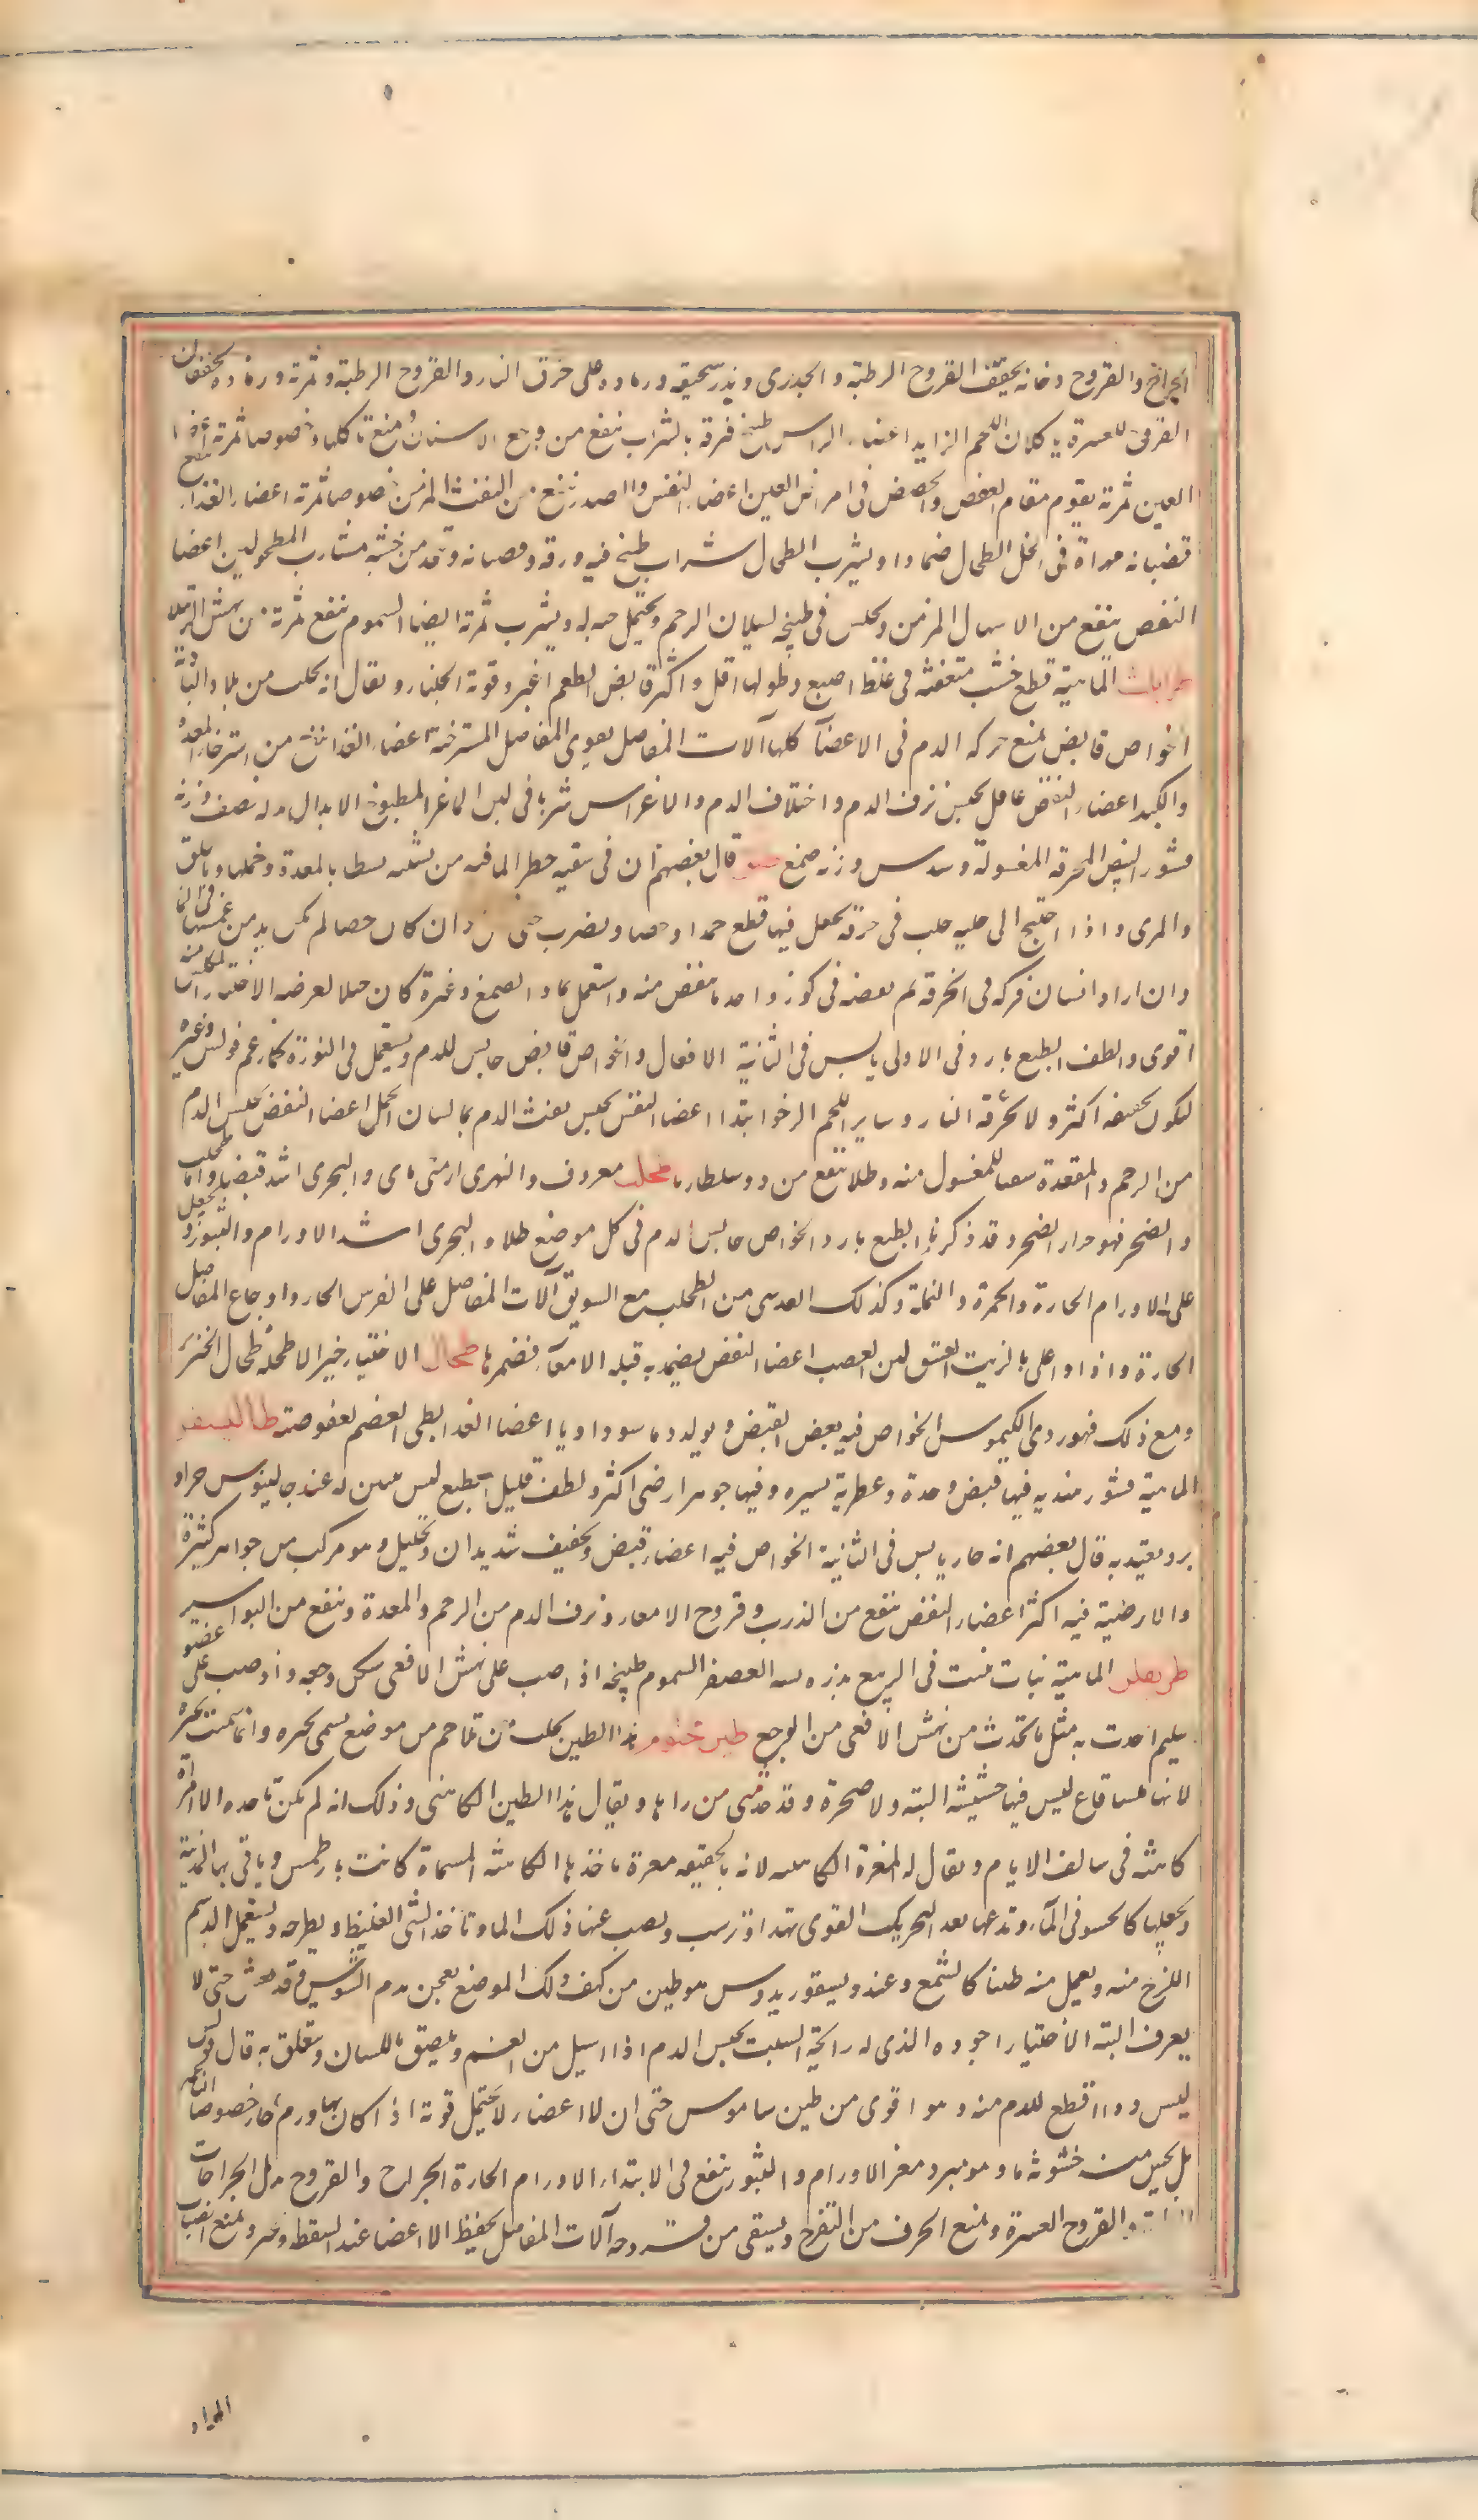 الجراح والقروح دخانه يجفف القروح الرطبة والجدرى ويذر سحيقه ورماده على حرق النار والقروح الرطبة وثمرته ورماده يجففان
القروح العسرة يأكلان اللحم الزايد اعضاء الراس طبيخ ورقه بالشراب ينفع من وجع الاسنان ومنع تأكلها وخصوصا ثمرته اعضا
العين ثمرته يقوم مقام العفص والحضض فى امراض العين اعضاء النفس والصدر ينفع من النفث المزمن خصوصا ثمرته اعضاء الغذاء ينفع
قضبانه مهراة فى الخل الطحال ضمادا ويشرب الطحال شراب طبخ فيه ورقه وقضبانه وتتخذ من خشبه مشارب المطحولين اعضا
النفض ينفع من الاسهال المزمن ويجلس فى طبيخه لسيلان الرحم ويحتمل حبه له ويشرب ثمرته ايضا السموم ينفع ثمرته من نهش الرتيلا
طراثيث الماهية قطع خشب متغضنة فى غلظ اصبع وطولها اقل واكثر قابض الطعم اغبر وقوته الجلنار ويقال انه يجلب من بلاد البادية
الخواص قابض يمنع حركة الدم فى الاعضآ كلها آلات المفاصل يقوى المفاصل المسترخية اعضاء الغذا ينفع من استرخاء المعدة
والكبد اعضاء النفض عاقل يحبس نزف الدم واختلاف الدم والاغراس شربا فى لبن الماعز المطبوخ الابدال بدله نصف وزنه
قشور البيض المحرقة المغسولة وسدس وزنه صمغ طلق قال بعضهم ان فى سقيه خطر الما فيه من تشبثه بشظايا المعدة وخملها وبالحلق
والمرى واذا احتيج الى حلبه حلب فى خرقة يجعل فيها قطع جمد او حصا ويضرب حتى وان كان حصا لم يكن بد من غمسها فى الما
وان اراد انسان فركه فى الخرقة ثم نفضه فى كوز واحد ما ينفض منه واستعمل بماء الصمغ وغيره كان حيلا لغرضه الاختيار المكلس منه
اقوى والطف الطبع بارد فى الاولى يابس فى الثانية الافعال والخواص قابض حابس للدم ويستعمل فى النورة كما زعم فولس وغيره
ليكون تجفيفه اكثر ولا تحرقه النار وساير اللحم الرخو ابتدا اعضا النفس يحبس نفث الدم بماء لسان الحمل اعضا النفض يحبس الدم
من الرحم والمقعدة سقيا للمغسول منه وطلا ينفع من دوسنطاريا طحلب معروف والنهرى ارضى مائى والبحرى اشد قبضا واما طحلب
والصخر فهو حزاز الصخر وقد ذكرناه الطبع بارد الخواص حابس الدم فى كل موضع طلاء والبحرى اشد الاورام والبثور يجعل
على الاورام الحارة والحمرة والنملة وكذلك العدسى من الطحلب مع السويق آلات المفاصل على النقرس الحار واوجاع المفاصل
الحارة واذا اغلى بالزيت العتيق لين العصب اعضا النفض يضمد به قيلة الامعآء فيضمرها طحال الاختيار خير الاطحلة طحال الخنزير
ومع ذلك فهو ردى الكيموس الخواص فيه بعض القبض ويولد دما سوداويا اعضا الغذا بطى الهضم لعفوصته طاليسفر
الماهية قشور هندية فيها قبض وحدة وعطرية يسيره وفيها جوهر ارضى اكثر ولطف قليل الطبع ليس يبين له عند جالينوس حر او
برد يعتد به قال بعضهم انه حار يابس فى الثانية الخواص فيه اعضاء قبض وتجفيف شديدان وتحليل وهو مركب من جواهر كثيرة
والارضية فيه اكثر اعضاء النفض ينفع من الذرب وقروح الامعاء ونزف الدم من الرحم والمعدة وينفع من البواسير
طريفلن الماهية نبات ينبت فى الربيع بزره يشبه العصفر السموم طبيخه اذا صب على نهش الافعى سكن وجعه واذا صب على عضو
سليم احدث به مثل ما تحدث من نهش الافعى من الوجع طين مختوم هذا الطين يجلب من تلاحم من موضع يسمى بحيره وانما سميت بحيره
لانها ملساء قاع ليس فيها حشيشه البته ولا صخرة وقد حدثنى من راها ويقال هذا الطين الكاهنى وذلك انه لم يكن ياخذه الا امراة
كاهنه فى سالف الايام ويقال له المغرة الكاهنيه لانه بالحقيقه مغرة ياخذها الكاهنه المسماة كانت بارطمس وياتى بها المدينة
وتجعلها كالحسو فى المآء وتدعها بعد التحريك القوى تهدا وترسب ويصب عنها ذلك الماء وتاخذ الشى الغليظ ويطرحه ويستعمل الدسم
اللزج منه ويعمل منه طينا كالشمع وعند ديسقوريدوس هو طين من كهف ذلك الموضع يعجن بدم التيوس وقد يغش حتى لا
يعرف البته الاختيار اجوده الذى له رائحة الشبت يحبس الدم اذا سيل من الفم ويلصق باللسان ويتعلق به قال فولس
ليس دواء اقطع للدم منه وهو اقوى من طين ساموس حتى ان الاعضاء لا تحتمل قوته اذا كان بها ورم حار خصوصا الناعمه
بل يحس منه خشونه ما وهو مبرد مغر الاورام والبثور ينفع فى الابتداء الاورام الحارة الجراح والقروح يدمل الجراحات
والقروح العسرة ويمنع الحرف من التقرح ويشفى من قروحه آلات المفاصل يحفظ الاعضا عند السقطه ويمنع انصباب
المواد